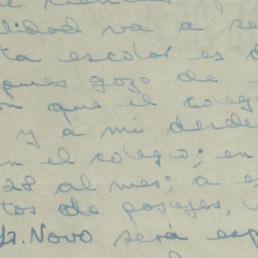 lidad va a se
ta escolar es d
ques gozo de
on que el coleg
y a mi desde
n el colegio; en
28 al mes; a e
tos de pasajes,
G. Novo será esp